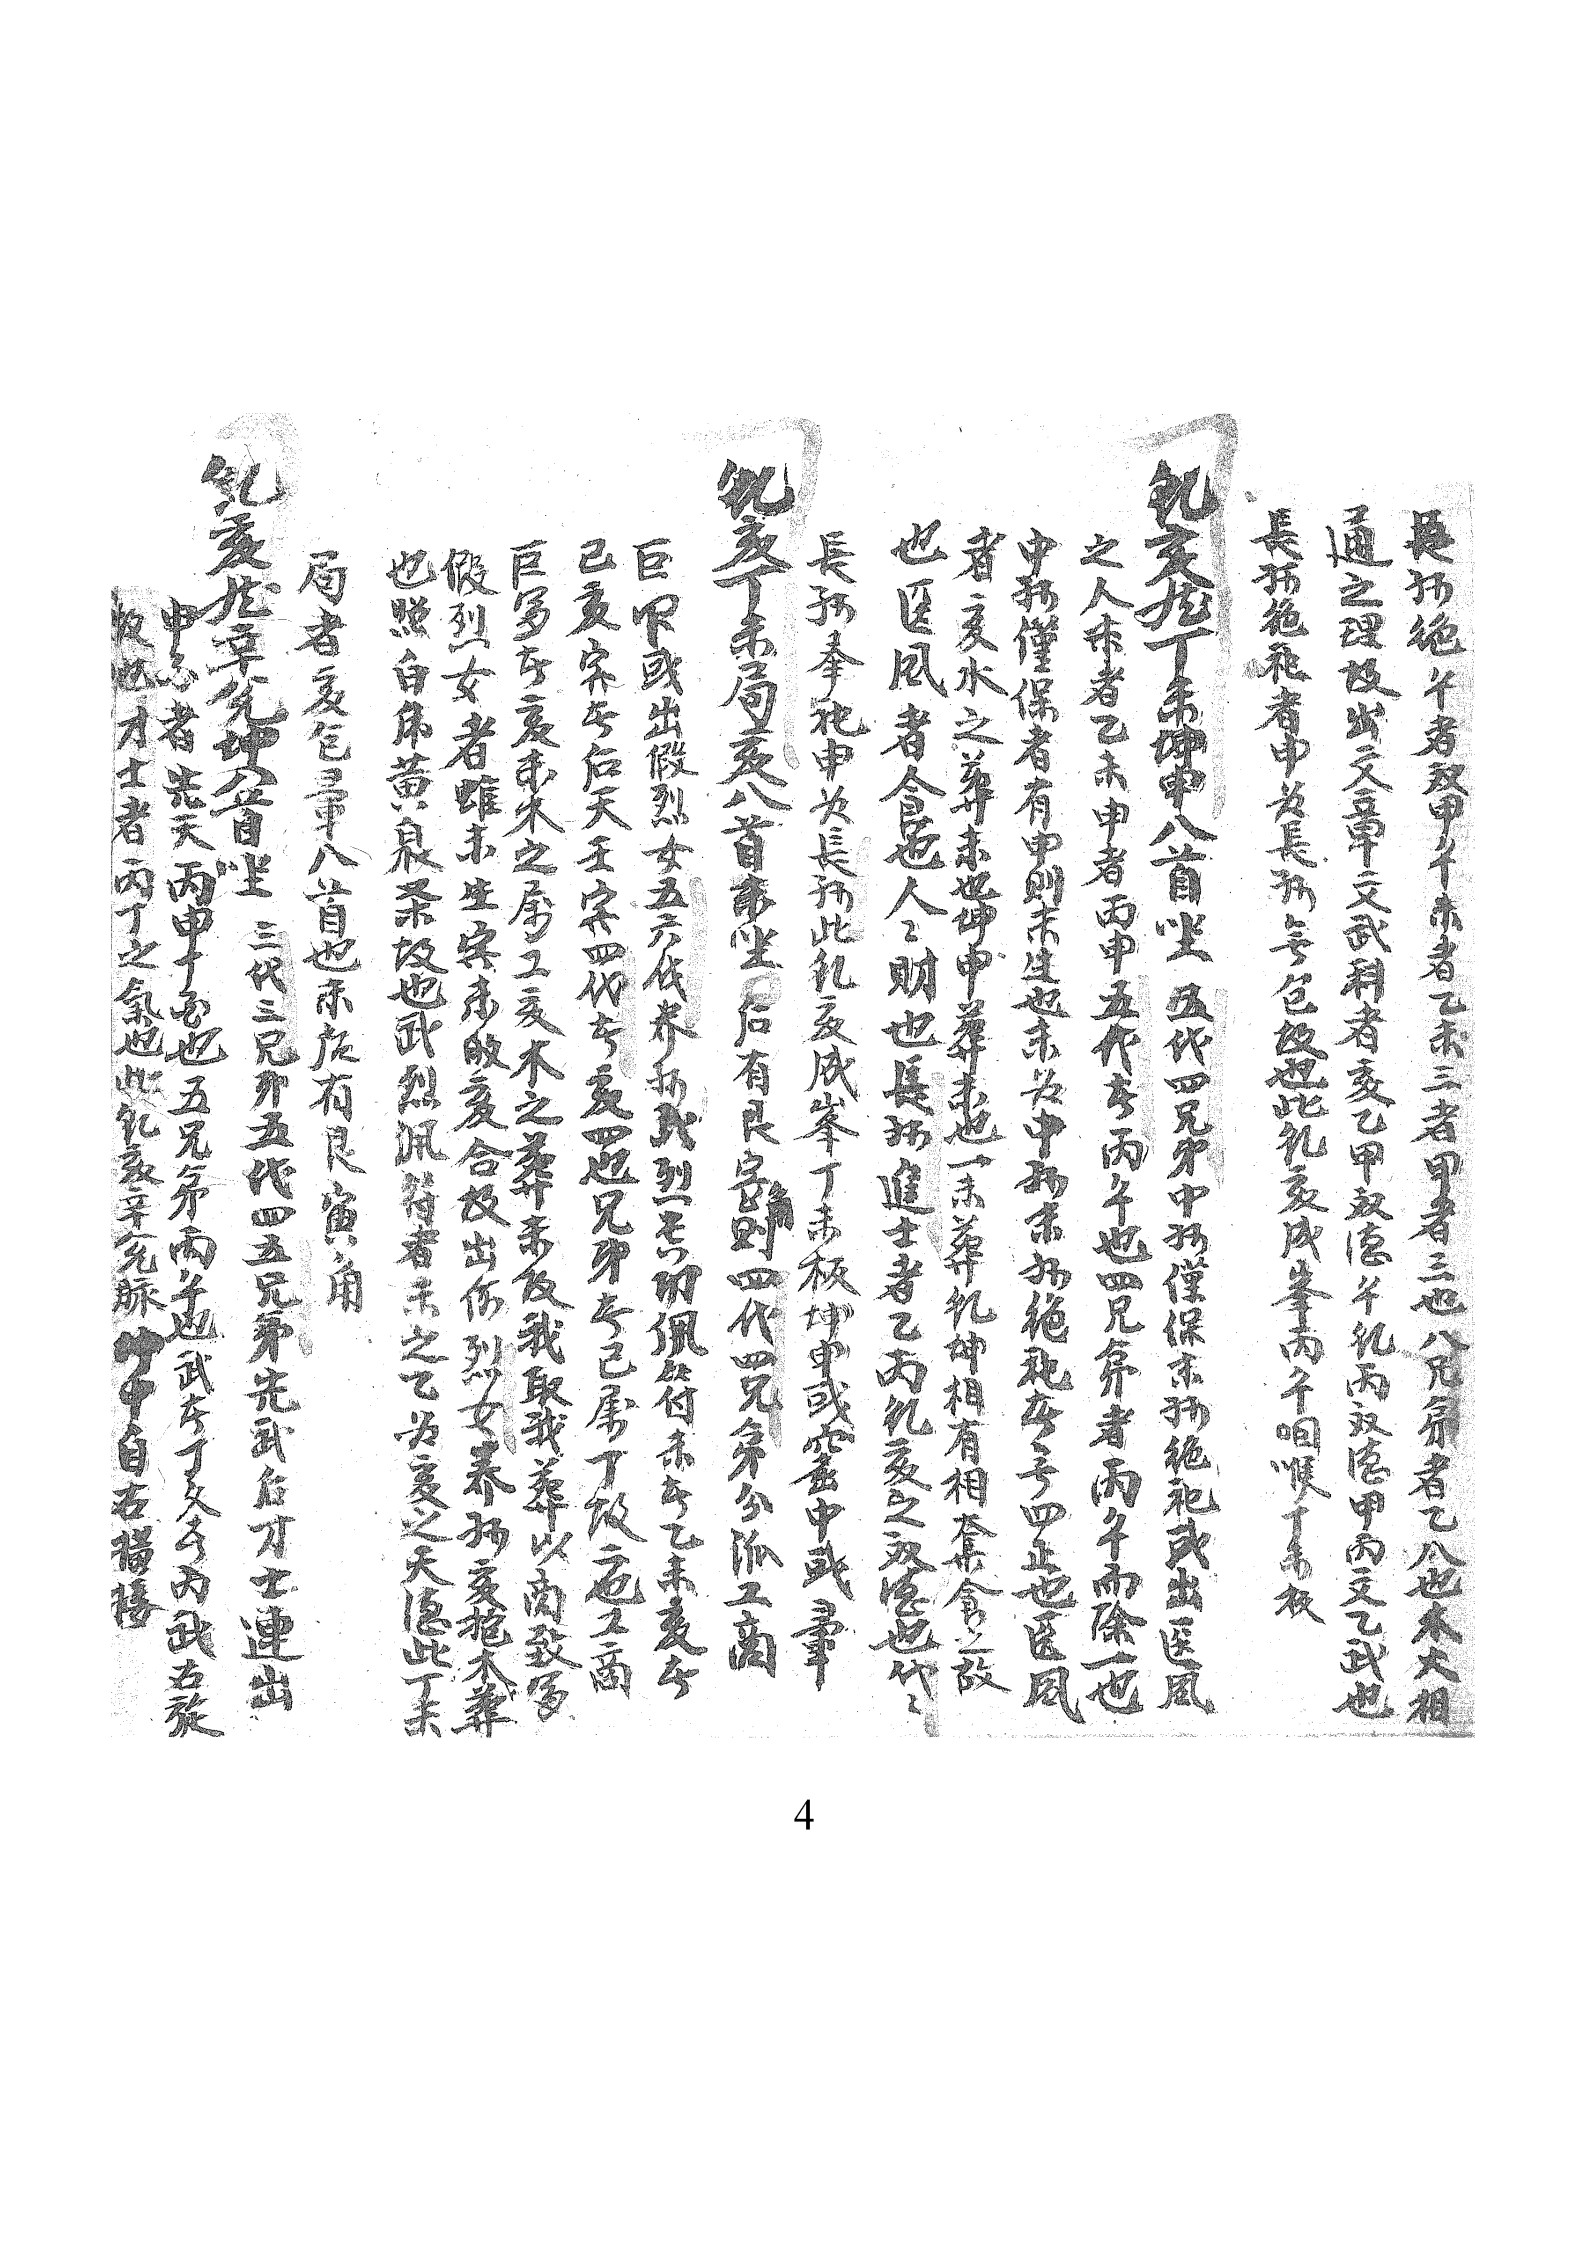 長孫絶午者双甲午未者乙未三者甲者三也八兄弟者乙八也木火相
通之理故出文章文武科者亥乙甲双德午乾丙双德甲丙文乙武也
長孫絶祀者申为長孫無包故也此乾亥成峯丙午咽喉丁未板
乾亥龙丁未坤申八首坐 五代四兄弟中孫僅保未孫絶祀或出医風
之人未者乙未申者丙申五代者丙午也四兄弟者丙午而除一也
中孫僅保者有申則未生也未为中孫未孫絶祀者亥四正也医風
者亥水之葬未也坤申葬未也一未葬乾坤相有相奪食之故
也医風者食也人〻財也長孫進士者乙丙乾亥之双德也代〻
長孫奉祀申为長孫此乾亥成峯丁未板坤申或窩中或暈
乾亥丁未局亥八首未坐 后有艮寅角則四代四兄弟分派工商
巨甲或出假烈女五六代养孫武烈 功佩符未者乙未亥者
己亥実者后天壬実四代者亥四也兄弟者己属丁故二也工商
巨富者亥未木之属工亥木之葬未故我取我葬以商致富
假烈女者雖未生実未敗亥合故出仮烈女養孫亥抱木葬
也照白席黄泉杀故也武烈佩符者未之乙为亥之天德此丁未
局者亥包暈八首也未顔有艮寅角
乾亥龙辛兌坤八首坐 三代三兄弟五代四五兄弟先武后才士連出
申 者先天丙申十 也五兄弟丙午也武者丁文者丙武右旋
故也才士者丙丁之氣也此乾亥辛兌脉坤申自右橫接
4